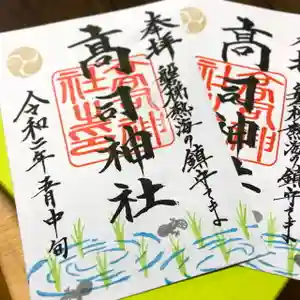 奉拝
磐梯熱海の鎮守さま
高司神社
高司神社之印
令和二年五月中旬
高司神社
磐梯熱海の鎮守さま